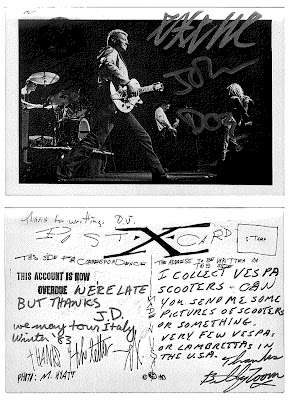 EXENE
JOHN
DOE
thanks for writing. D.J.
POST X CARD
STAMP
THIS SIDE FOR CORRESPONDENCE
THE ADDRESS TO BE WRITTEN ON
THIS SIDE
THIS ACCOUNT IS NOW
OVERDUE WE'RE LATE
BUT THANKS
J.D.
we may tour Italy
Winter '83
THANX
PHOTO: M. HYATT
I COLLECT VESPA
SCOOTERS - CAN
YOU SEND ME SOME
PICTURES OF SCOOTERS
OR SOMETHING.
VERY FEW VESPA,
OR LAMBRETTAS IN
THE U.S.A. Thanks
Billy Zoom